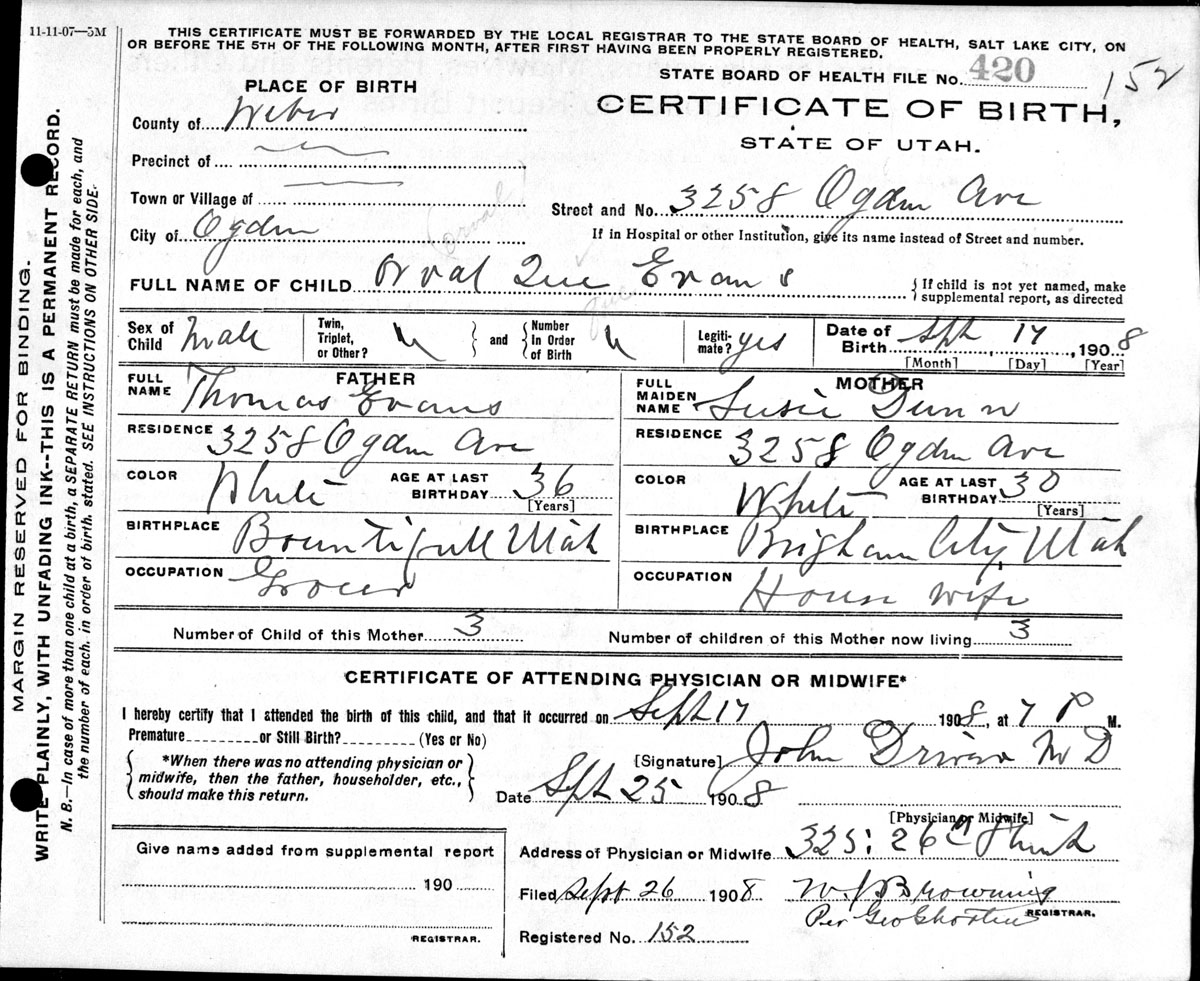 11-11-07—5M
THIS CERTIFICATE MUST BE FORWARDED BY THE LOCAL REGISTRAR TO THE STATE BOARD OF HEALTH, SALT LAKE CITY, ON
OR BEFORE THE 5TH OF THE FOLLOWING MONTH, AFTER FIRST HAVING BEEN PROPERLY REGISTERED.
MARGIN RESERVED FOR BINDING.
WRITE PLAINLY, WITH UNFADING INK--THIS IS A PERMANENT RECORD.
N. B.—In case of more than one child at a birth, a SEPARATE RETURN must be made for each, and
the number of each, in order of birth, stated. SEE INSTRUCTIONS ON OTHER SIDE.
STATE BOARD OF HEALTH FILE No. 420
152
PLACE OF BIRTH
CERTIFICATE OF BIRTH,
STATE OF UTAH.
County of Weber
Precinct of
Town or Village of
City of Ogden
Street and No. 3258 Ogden Ave
If in Hospital or other Institution, give its name instead of Street and number.
Orval
FULL NAME OF CHILD Orval Que Evans
Que
If child is not yet named, make
supplemental report, as directed
Sex of Child Male
Twin, Triplet, or Other?
and
Number In Order of Birth
Legitimate? yes
Date of Birth Sept 17, 1908
[Month] [Day] [Year]
FATHER
FULL NAME Thomas Evans
RESIDENCE 3258 Ogden Ave
COLOR White AGE AT LAST BIRTHDAY 36
[Years]
BIRTHPLACE Bountifull Utah
OCCUPATION Grocer
MOTHER
FULL MAIDEN NAME Susie Dunn
RESIDENCE 3258 Ogden Ave
COLOR White AGE AT LAST BIRTHDAY 30
[Years]
BIRTHPLACE Brigham City, Utah
OCCUPATION House wife
Number of Child of this Mother 3 Number of children of this Mother now living 3
CERTIFICATE OF ATTENDING PHYSICIAN OR MIDWIFE*
I hereby certify that I attended the birth of this child, and that it occurred on Sept 17 1908, at 7 P M.
Premature or Still Birth? (Yes or No)
*When there was no attending physician or
midwife, then the father, householder, etc.,
should make this return.
[Signature] John Driver MD
Date Sept 25 1908
[Physician or Midwife]
Give name added from supplemental report
190
REGISTRAR.
Address of Physician or Midwife 325: 26th
Filed Sept 26 1908 W J Browning
Per Geo
REGISTRAR.
Registered No. 152